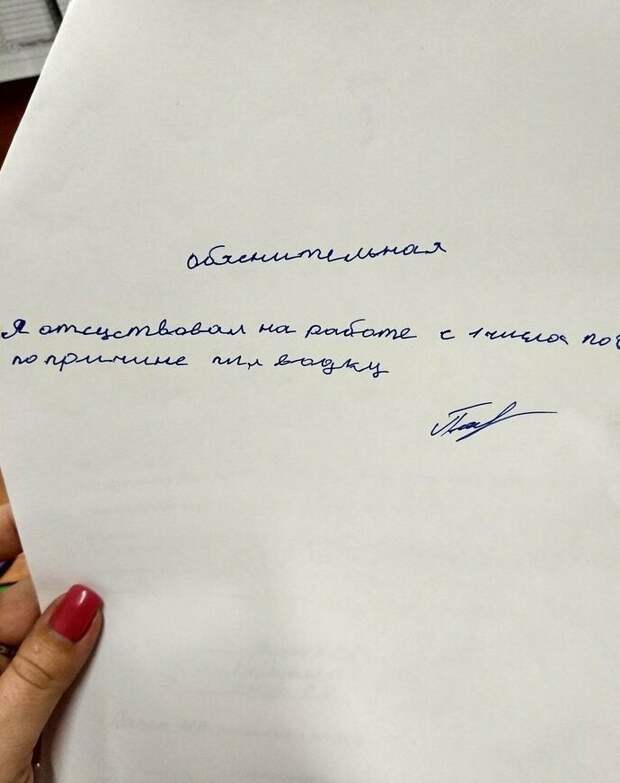 объяснительная
Я отсуствовал на работе с 1 числа по
по причине пил водку